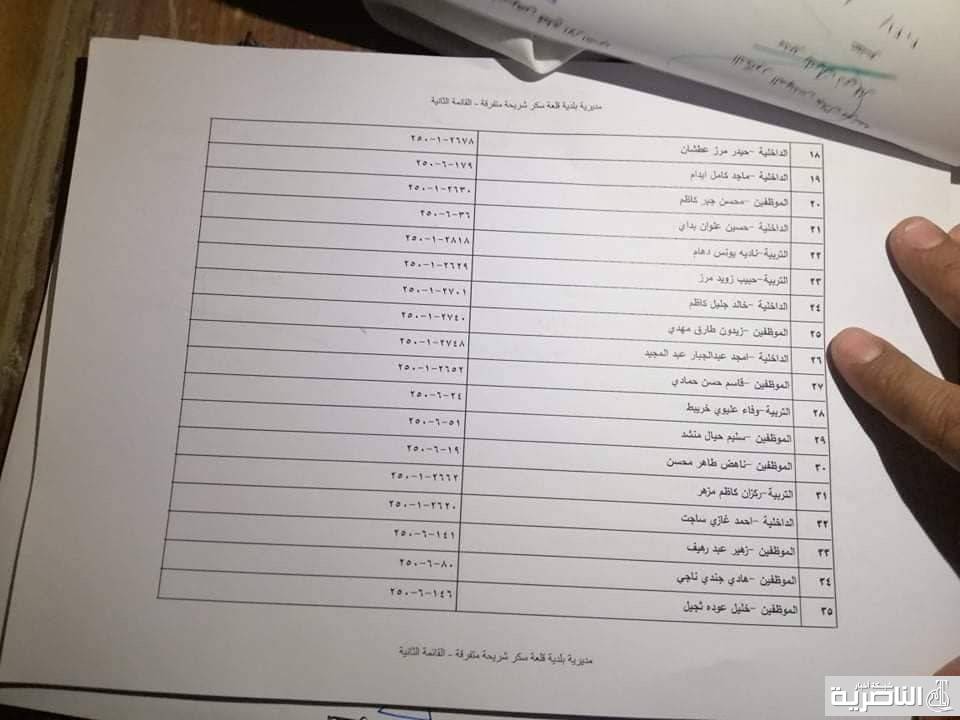 مديرية بلدية قلعة سكر شريحة متفرقة - القائمة الثانية
١٨ الداخلية -حيدر مرز عطشان ٢٥٠-١-٢٦٧٨
١٩ الداخلية -ماجد كامل ايدام ٢٥٠-٦-١٧٩
٢٠ الموظفين -محسن جبر كاظم ٢٥٠-١-٢٦٣٠
٢١ الداخلية -حسين علوان بداي ٢٥٠-٦-٣٦
٢٢ التربية-ناديه يونس دهام ٢٥٠-١-٢٨١٨
٢٣ التربية-حبيب زويد مرز ٢٥٠-١-٢٦٢٩
٢٤ الداخلية -خالد جليل كاظم ٢٥٠-١-٢٧٠١
٢٥ الموظفين -زيدون طارق مهدي ٢٥٠-١-٢٧٤٠
٢٦ الداخلية -امجد عبدالجبار عبد المجيد ٢٥٠-١-٢٧٤٨
٢٧ الموظفين -قاسم حسن حمادي ٢٥٠-١-٢٦٥٢
٢٨ التربية-وفاء عليوي خريبط ٢٥٠-٦-٢٤
٢٩ الموظفين -سليم حيال منشد ٢٥٠-٦-٥١
٣٠ الموظفين -ناهض طاهر محسن ٢٥٠-٦-١٩
٣١ التربية-ركزان كاظم مزهر ٢٥٠-١-٢٦٦٢
٣٢ الداخلية -احمد غازي ساجت ٢٥٠-١-٢٦٢٠
٣٣ الموظفين -زهير عبد رهيف ٢٥٠-٦-١٤١
٣٤ الموظفين -هادي جندي ناجي ٢٥٠-٦-٨٠
٣٥ الموظفين -خليل عوده ثجيل ٢٥٠-٦-١٤٦
مديرية بلدية قلعة سكر شريحة متفرقة - القائمة الثانية
شبكة أخبار
الناصرية